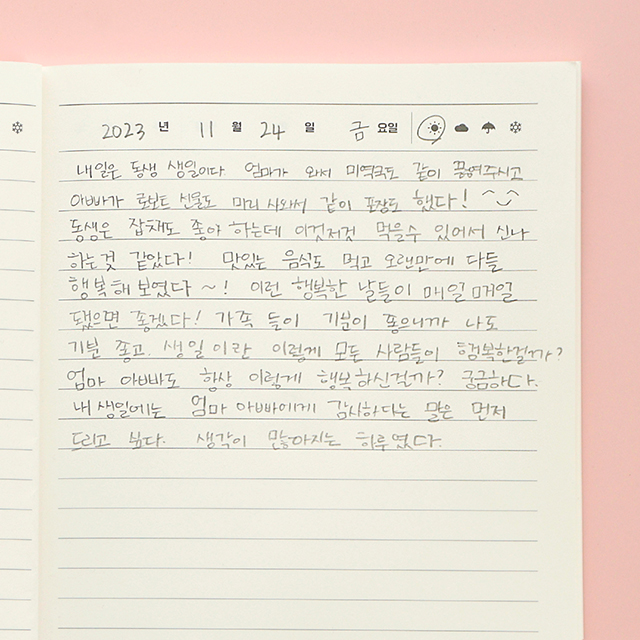 2023 년 11 월 24 일 금 요일
내일은 동생 생일이다. 엄마가 와서 미역국도 같이 끓여주시고
아빠가 로보트 선물도 미리 사와서 같이 포장도 했다! ^◡^
동생은 잡채도 좋아 하는데 이것저것 먹을수 있어서 신나
하는것 같았다! 맛있는 음식도 먹고 오랜만에 다들
행복해 보였다 ~! 이런 행복한 날들이 매일 매일
됐으면 좋겠다! 가족 들이 기분이 좋으니까 나도
기분 좋고. 생일이란 이렇게 모든 사람들이 행복한걸까?
엄마 아빠도 항상 이렇게 행복하신걸까? 궁금하다.
내 생일에는 엄마 아빠에게 감사하다는 말은 먼저
드리고 싶다. 생각이 많아지는 하루였다.